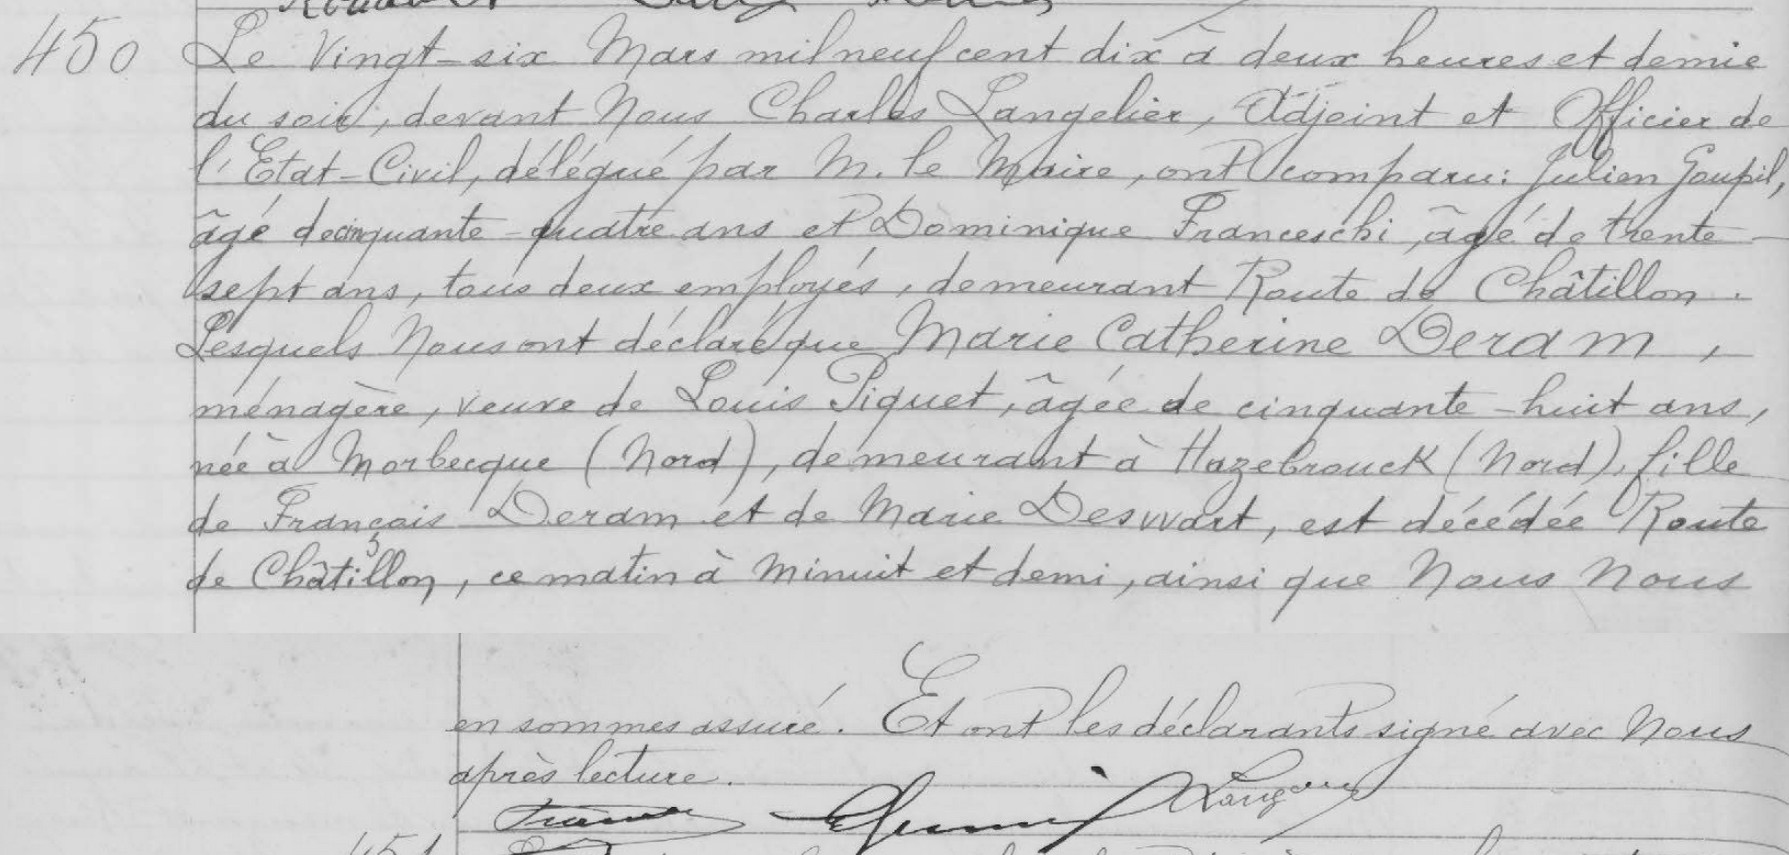 450 Le Vingt-six Mars mil neuf cent dix à deux heures et demie
du soir, devant Nous Charles Langelier, Adjoint et Officier de
l'Etat-Civil, délégué par M. le Maire, ont comparu: Julien Goupil,
âgé de cinquante-quatre ans et Dominique Franceschi, âgé de trente-
sept ans, tous deux employés, demeurant Route de Châtillon.
Lesquels Nous ont déclaré que Marie Catherine Deram,
ménagère, veuve de Louis Piquet, âgée de cinquante-huit ans,
née à Morbecque (Nord), demeurant à Hazebrouck (Nord), fille
de François Deram et de Marie Deswart, est décédée Route
de Châtillon, ce matin à Minuit et demi, ainsi que Nous Nous
en sommes assuré. Et ont les déclarants signé avec Nous
après lecture.
451